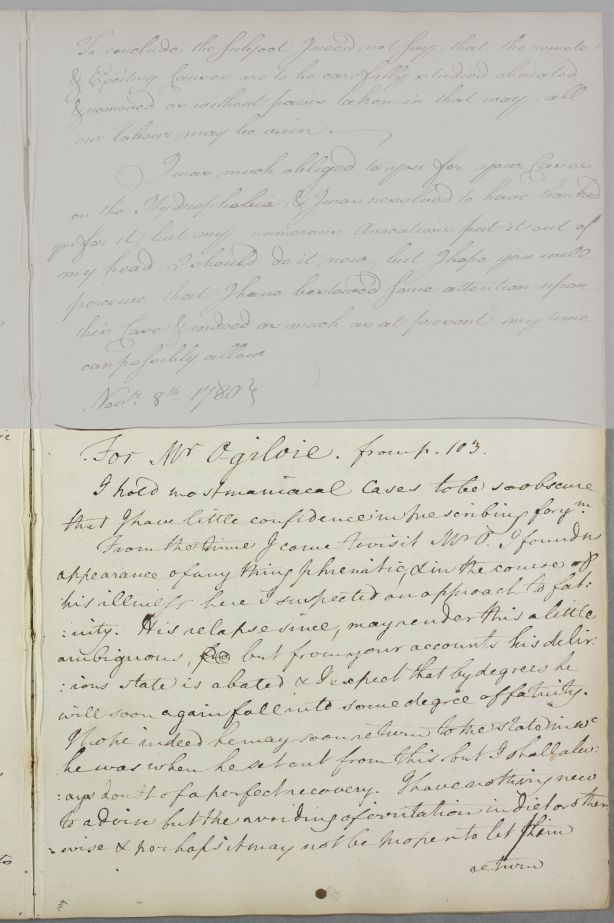 To conclude the subject I need not say, that the remote
& Exciting Causes are to be carefully studied obviated
& removed as without pains taken in that way, all
our labour may be vain.
I was much obliged to you for your Cases
on the Hydrophobia, & I was resolved to have thanked
you for it, but my numerous avocations put it out of
my head. I should do it now, but I hope you will
perceive that I have bestowed some attention upon
this Case & indeed as much as at present my time
can possibly allow
Novr. 8th 1780
For Mr Ogilvie. from p. 103.
I hold most maniacal Cases to be so obscure
that I have little confidence in prescribing for ym
From the time I came to visit Mr O. I found no
appearance of any thing phrenitic, & in the course of
his illness here I suspected an approach to fat:
:uity. His relapse since, may render this a little
ambiguous, but from your accounts his delir:
:ious state is abated & I expect that by degrees he
will soon again fall into some degree of fatuity.
I hope indeed he may soon return to the state in wc
he was when he set out from this but I shall alw:
:ays doubt of a perfect recovery. I have nothing new
to advise but the avoiding of irritation in diet or other
wise & perhaps it may not be proper to let him
return